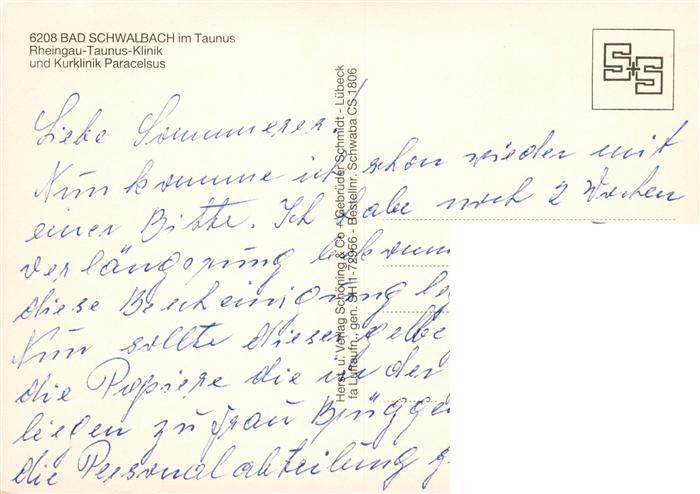 6208 BAD SCHWALBACH im Taunus
Rheingau-Taunus-Klinik
und Kurklinik Paracelsus
S+S
Herst. u. Verlag Schöning & Co + Gebrüder Schmidt - Lübeck
fa Luftaufn., gen. SH 1-72956 - Bestellnr. Schwaba CS 1806
Liebe Sommerer!
Nun komme ich schon wieder mit
einer Bitte. Ich habe noch 2 Wochen
verlängerung bekomm
diese Bescheinigung
Nun sollte dieser gelbe
die Papiere die in der
liegen zu Frau Brügge
die Personalabteilung g